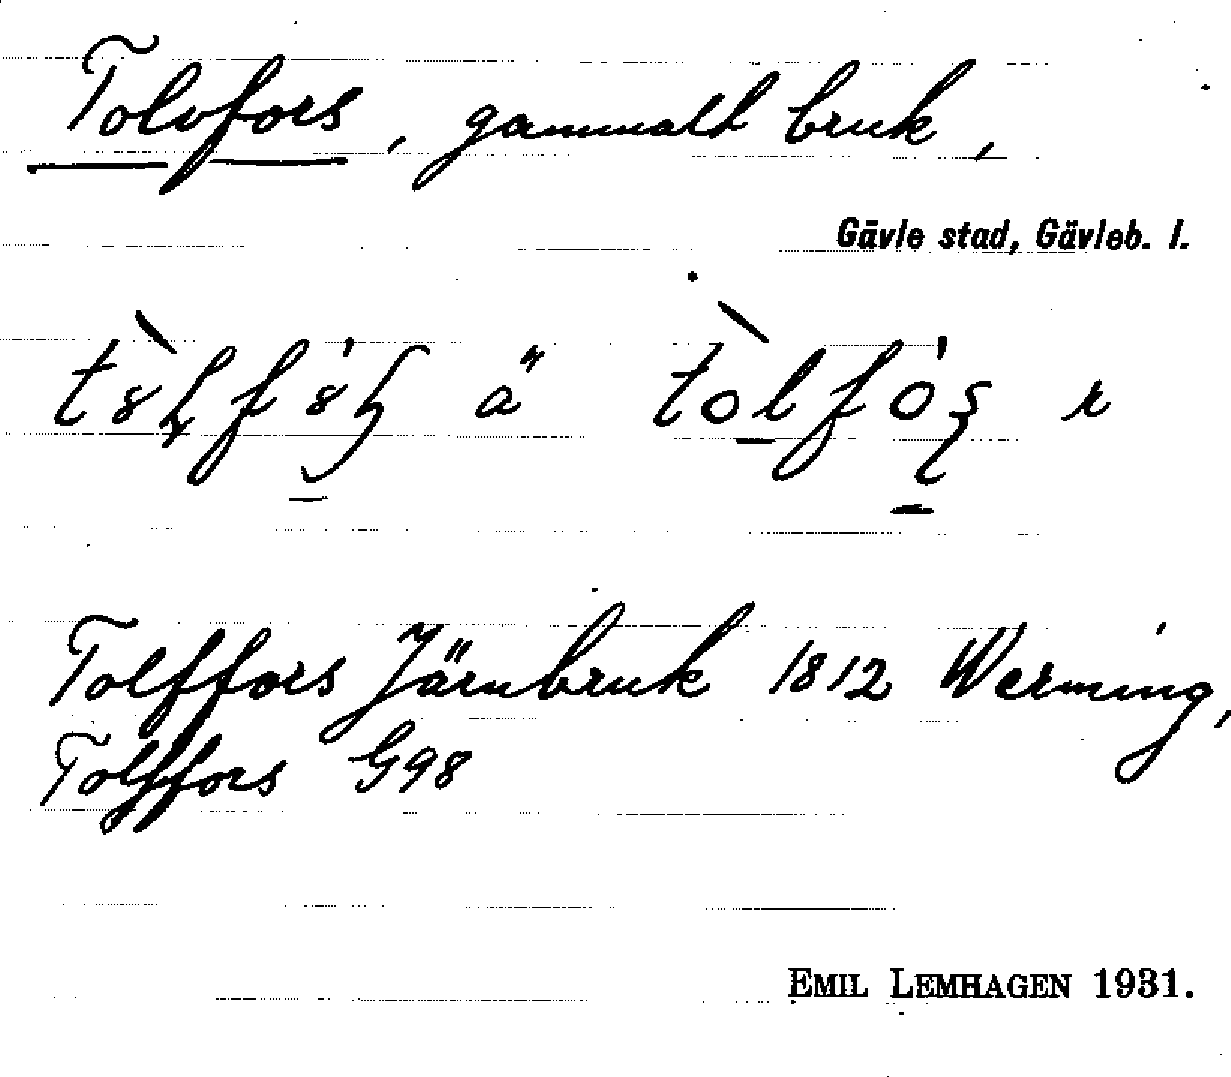 Tolvfors, gammalt bruk,
Gävle stad, Gävleb. l.
ä r
Tolffors Järnbruk 1812 Werming,
Tolffors G98
EMIL LEMHAGEN 1931.